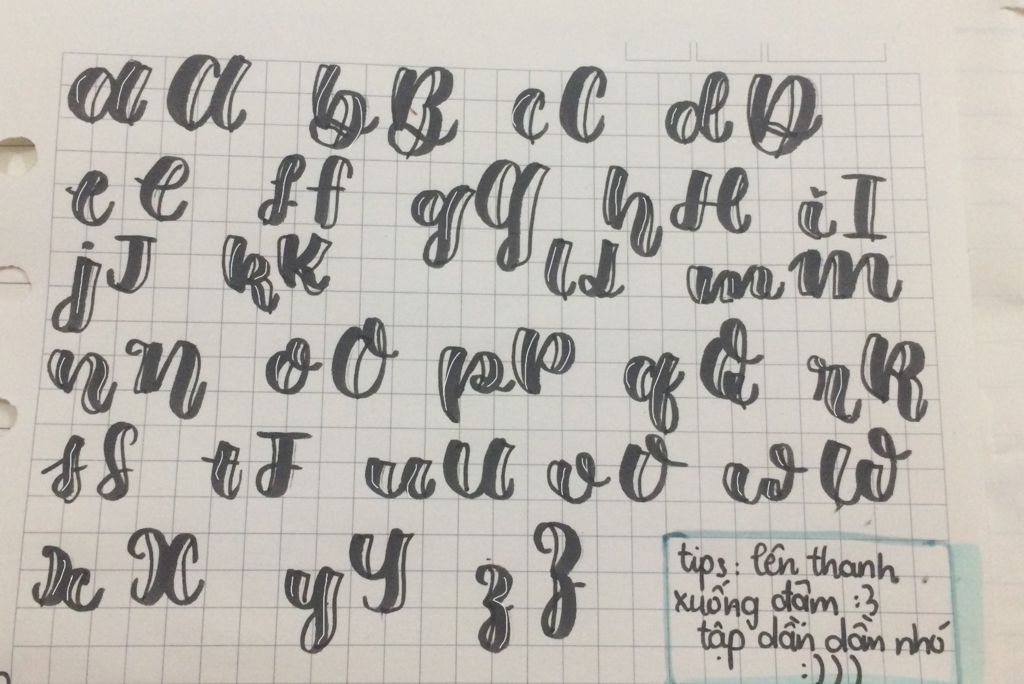 a A b B c C d D
e E f f g G h H i I
j J k K l L m M
n N o O p P q Q r R
s S t T u U v V w W
x X y Y z Z
tips: lên thanh
xuống đậm :3
tập dần dần nhó
:)))